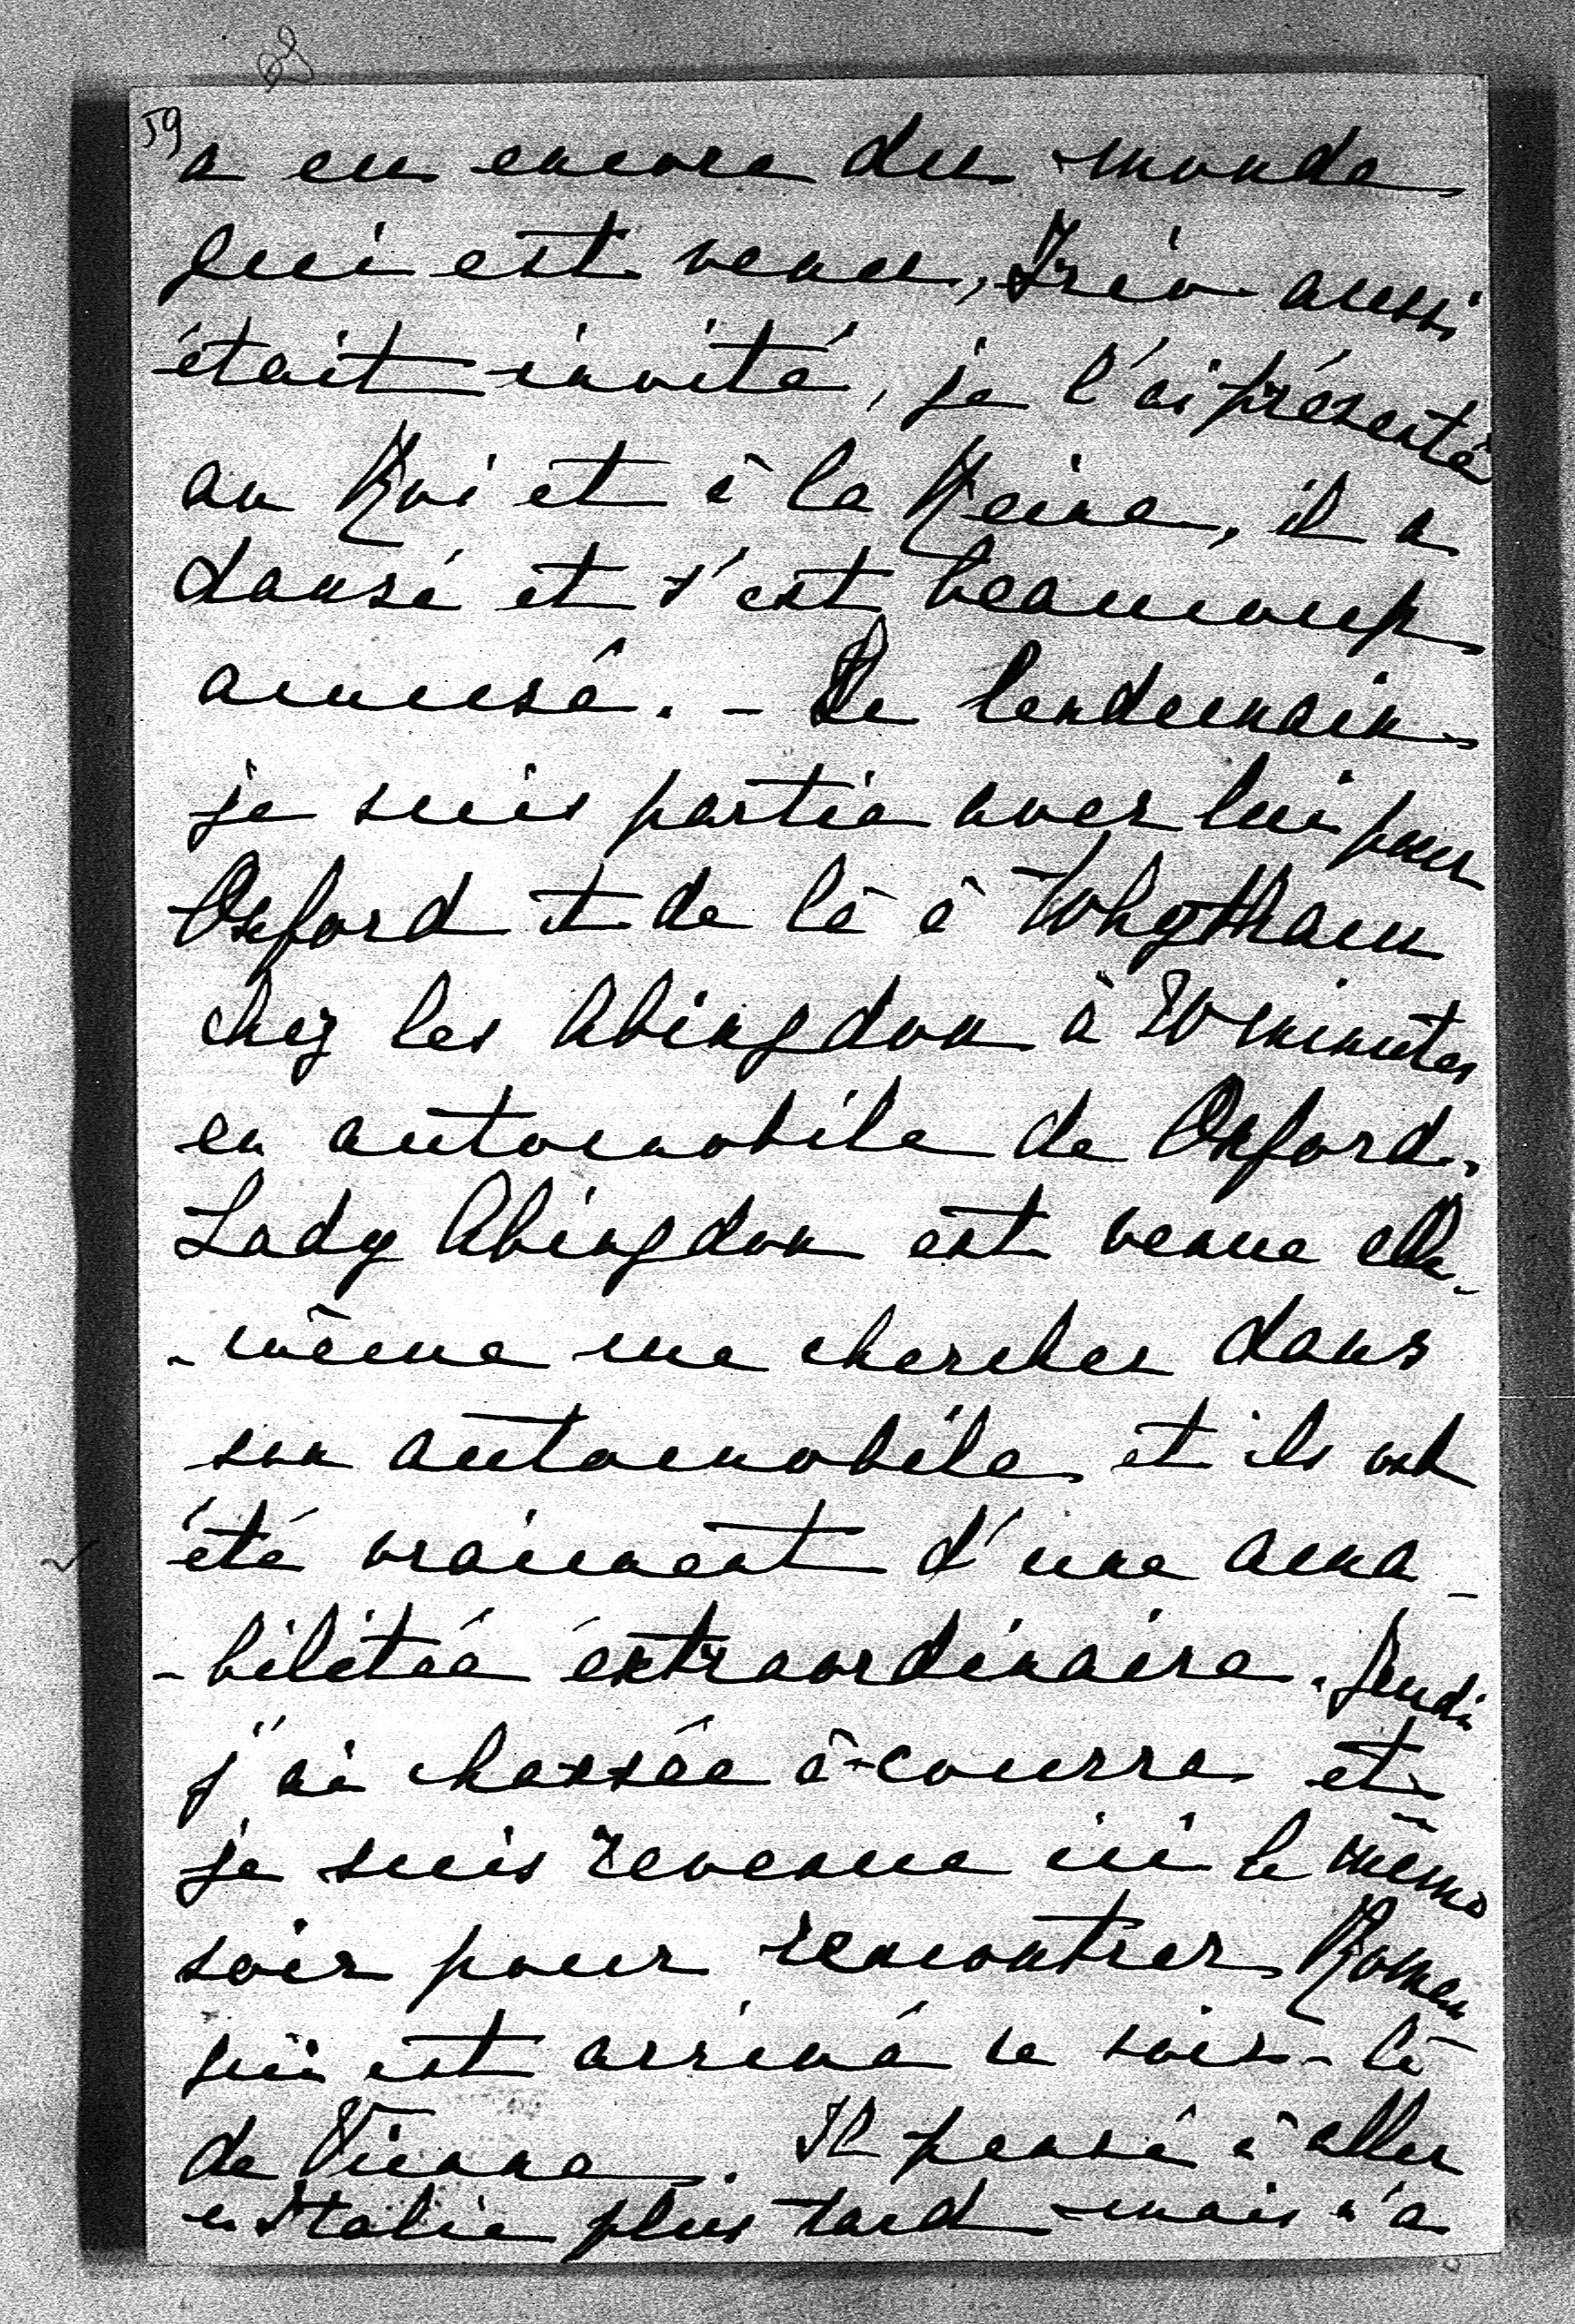 59
a eu encore du monde
qui est venu, Izio aussi
était invité, je l'ai présenté
au Roi et à la Reine, il a
dansé et s'est beaucoup
amusé. - Le lendemain
je suis partie avec lui pour
Oxford et de là à Whytham
chez les Abingdon à 20 minutes
en automobile de Oxford.
Lady Abingdon est venue elle-
-même me chercher dans
son automobile et ils ont
été vraiment d'une ama-
-bilitée éxtraordinaire. Jeudi
j'ai chassée à-courre et
je suis revenue ici le même
soir pour rencontrer Roman
qui est arrivé ce soir-là
de Vienne. Il pense à aller
en Italie plus tard mais n'a